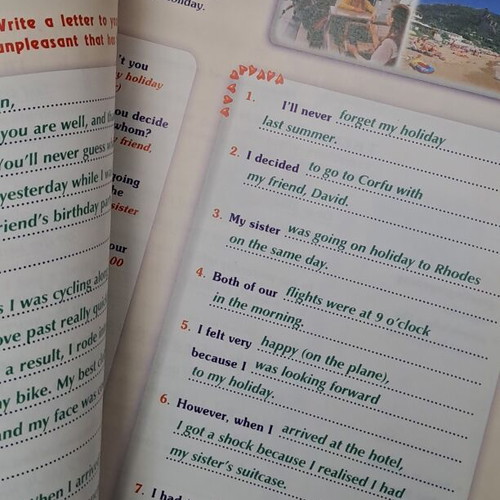 Write a letter to
unpleasant that
you are well, and
You'll never guess
yesterday while I
friend's birthday
s I was cycling
past really
a result, I rode
bike. My best
and my face was
When I
holiday.
't you
my holiday
you decide
whom?
my friend,
going
sister
our
00
1. I'll never forget my holiday
last summer.
2. I decided to go to Corfu with
my friend, David.
3. My sister was going on holiday to Rhodes
on the same day.
4. Both of our flights were at 9 o'clock
in the morning.
5. I felt very happy (on the plane),
because I was looking forward
to my holiday.
6. However, when I arrived at the hotel,
I got a shock because I realised I had
my sister's suitcase.
7. I had